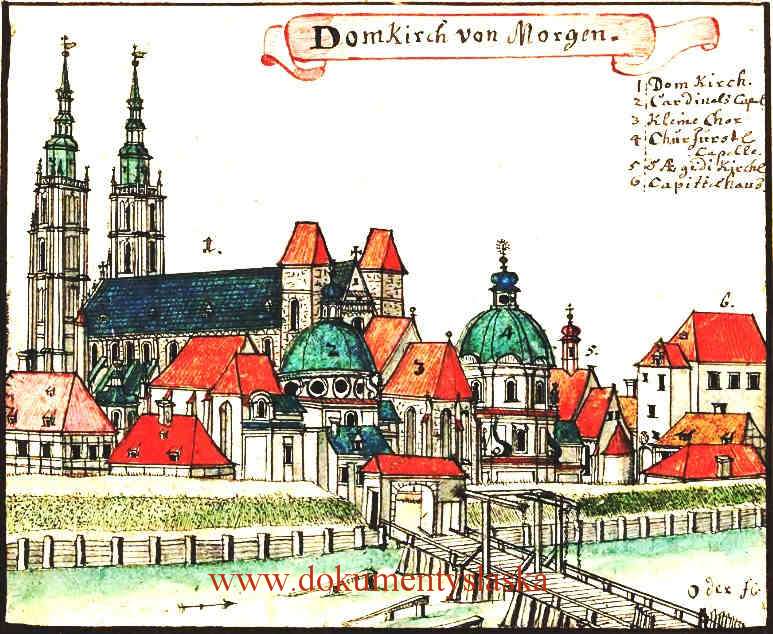 Domkirch von Morgen.
1 Dom Kirch.
2 Cardinals Capel
3 Kleine Chor
4 Churfürstl
Capelle.
5 S Ægidi Kirchl
6 Capittelhaus
1.
6.
5.
4
2
3
Oder fl
www.dokumentyslaska